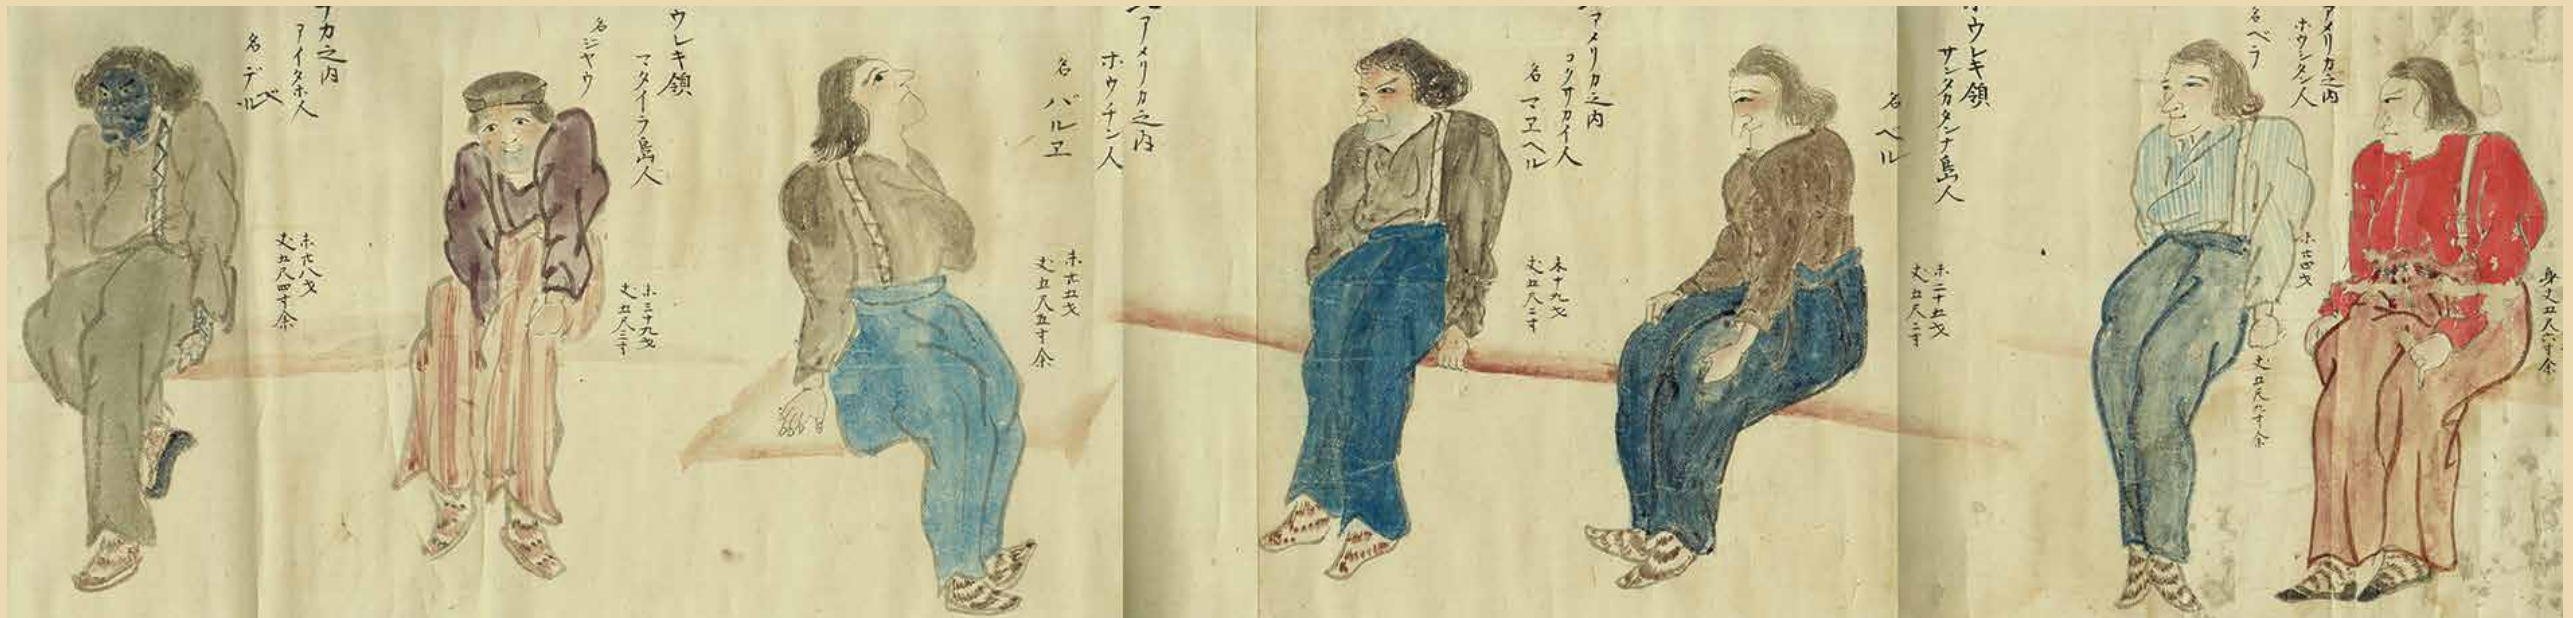 アメリカ之内
ホウシタン人
名 ベラ
身丈五尺六寸余
未廿四才
丈五尺九寸余
ホウレキ領
サンタカタンナ島人
名 ベル
未二十五才
丈五尺二寸
アメリカ之内
コクサカイ人
名 マヱヘル
未十九才
丈五尺二寸
アメリカ之内
ホウチン人
名 バルヱ
未廿五才
丈五尺五寸余
ウレキ領
マタイラ島人
名 ジヤウ
未三十九才
丈五尺三寸
カ之内
アイタホ人
名 デベル
未廿八才
丈五尺四寸余